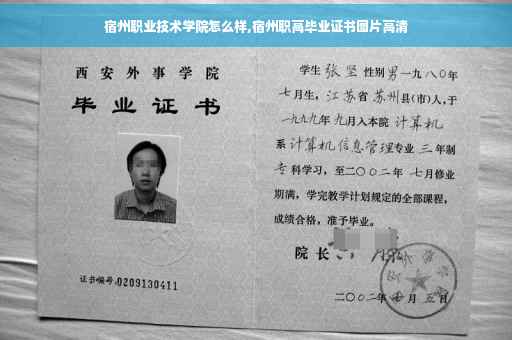 宿州职业技术学院怎么样,宿州职高毕业证书图片高清
西安外事学院
毕业证书
证书编号:0209130411
学生 张坚 性别 男 一九八〇年
七月生,江苏省 苏州县(市)人,于
一九九九年 九月入本院 计算机
系 计算机信息管理专业 三 年制
专 科学习,至二〇〇二年 七月修业
期满,学完教学计划规定的全部课程,
成绩合格,准予毕业。
院长
二〇〇二年 七 月 五 日